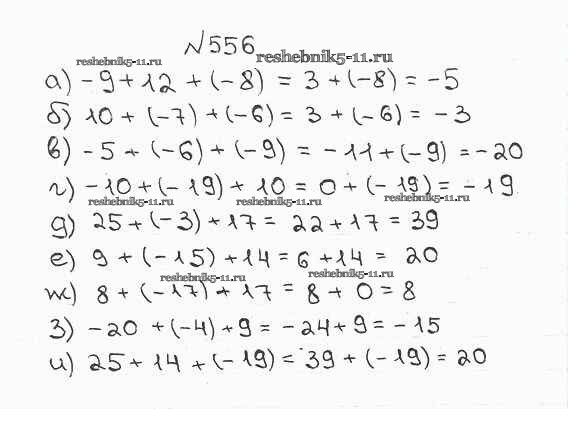 №556
reshebnik5-11.ru reshebnik5-11.ru
а) -9 + 12 + (-8) = 3 + (-8) = -5
б) 10 + (-7) + (-6) = 3 + (-6) = -3
в) -5 + (-6) + (-9) = -11 + (-9) = -20
г) -10 + (-19) + 10 = 0 + (-19) = -19
reshebnik5-11.ru reshebnik5-11.ru reshebnik5-11.ru
д) 25 + (-3) + 17 = 22 + 17 = 39
е) 9 + (-15) + 14 = 6 + 14 = 20
reshebnik5-11.ru reshebnik5-11.ru
ж) 8 + (-17) + 17 = 8 + 0 = 8
з) -20 + (-4) + 9 = -24 + 9 = -15
и) 25 + 14 + (-19) = 39 + (-19) = 20